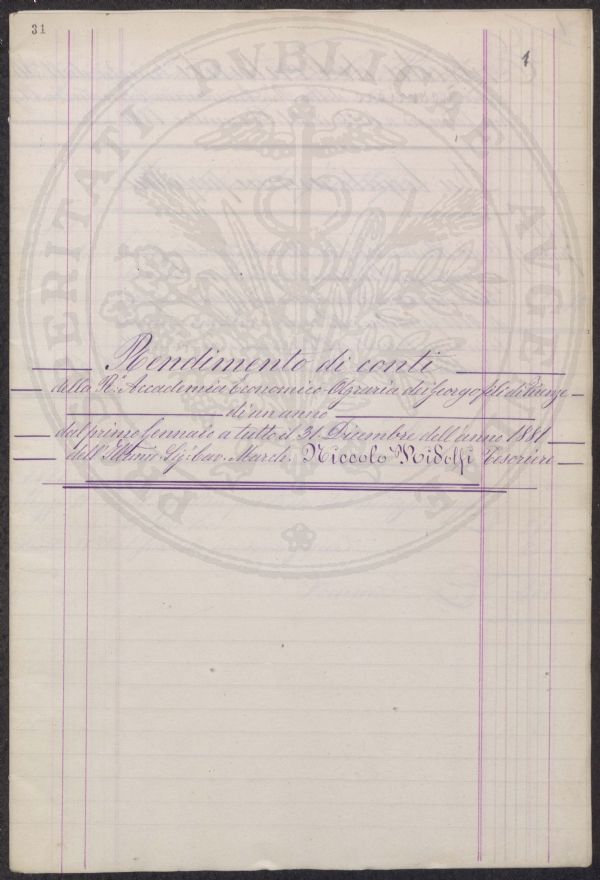 31
1
PROSPERITATI PVBLICAE AVGENDAE
Rendimento di conti
della R. Accademia Economico-Agraria dei Georgofili di Firenze
di un anno
dal primo Gennaio a tutto il 31 Dicembre dell'anno 1881
dell'Illmo Sig: Cav. March. Niccolo Ridolfi Tesoriere